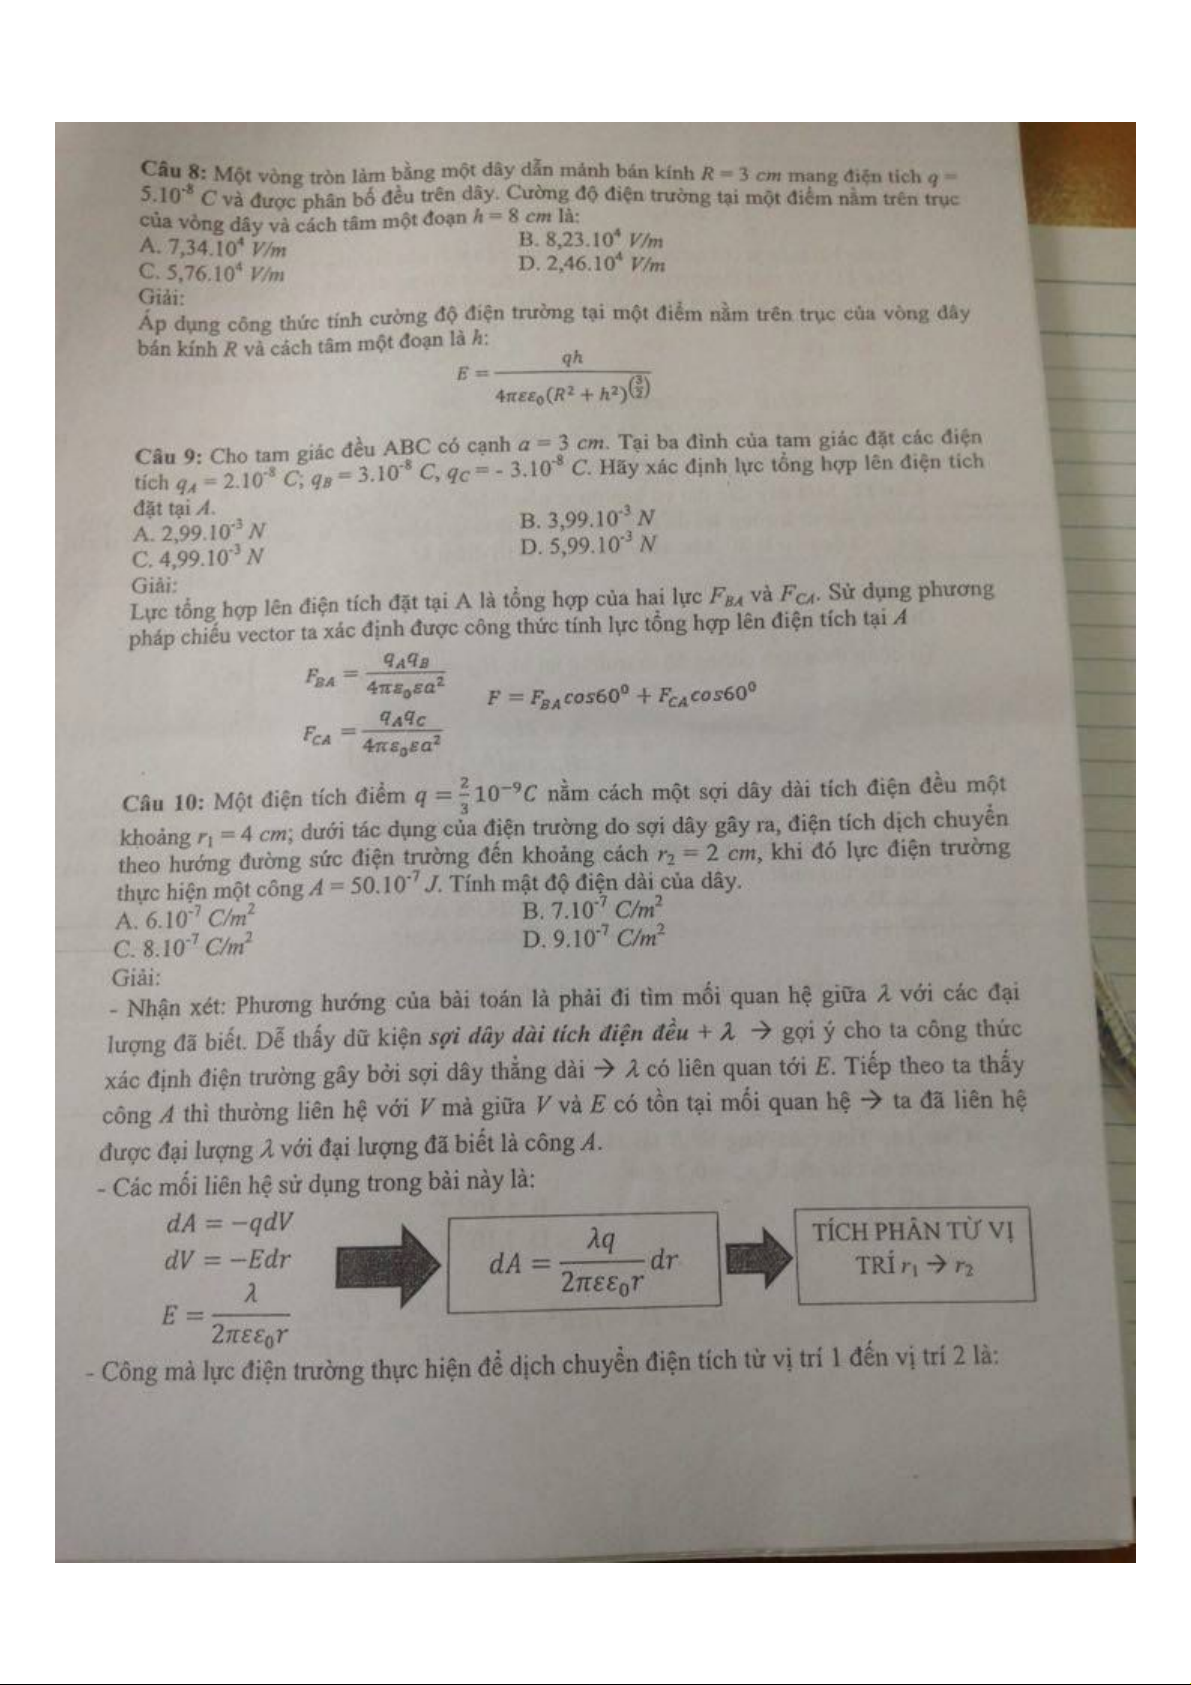 Câu 8: Một vòng tròn làm bằng một dây dẫn mảnh bán kính R = 3 cm mang điện tích q =
5.10⁻⁸ C và được phân bố đều trên dây. Cường độ điện trường tại một điểm nằm trên trục
của vòng dây và cách tâm một đoạn h = 8 cm là:
A. 7,34.10⁴ V/m B. 8,23.10⁴ V/m
C. 5,76.10⁴ V/m D. 2,46.10⁴ V/m
Giải:
Áp dụng công thức tính cường độ điện trường tại một điểm nằm trên trục của vòng dây
bán kính R và cách tâm một đoạn là h:
E = qh / 4πεε₀(R² + h²)^(3/2)
Câu 9: Cho tam giác đều ABC có cạnh a = 3 cm. Tại ba đỉnh của tam giác đặt các điện
tích q_A = 2.10⁻⁸ C; q_B = 3.10⁻⁸ C, q_C = - 3.10⁻⁸ C. Hãy xác định lực tổng hợp lên điện tích
đặt tại A.
A. 2,99.10⁻³ N B. 3,99.10⁻³ N
C. 4,99.10⁻³ N D. 5,99.10⁻³ N
Giải:
Lực tổng hợp lên điện tích đặt tại A là tổng hợp của hai lực F_BA và F_CA. Sử dụng phương
pháp chiếu vector ta xác định được công thức tính lực tổng hợp lên điện tích tại A
F_BA = q_A q_B / 4πε₀εa²
F = F_BA cos60⁰ + F_CA cos60⁰
F_CA = q_A q_C / 4πε₀εa²
Câu 10: Một điện tích điểm q = 2/3 10⁻⁹C nằm cách một sợi dây dài tích điện đều một
khoảng r₁ = 4 cm; dưới tác dụng của điện trường do sợi dây gây ra, điện tích dịch chuyển
theo hướng đường sức điện trường đến khoảng cách r₂ = 2 cm, khi đó lực điện trường
thực hiện một công A = 50.10⁻⁷ J. Tính mật độ điện dài của dây.
A. 6.10⁻⁷ C/m² B. 7.10⁻⁷ C/m²
C. 8.10⁻⁷ C/m² D. 9.10⁻⁷ C/m²
Giải:
- Nhận xét: Phương hướng của bài toán là phải đi tìm mối quan hệ giữa λ với các đại
lượng đã biết. Dễ thấy dữ kiện sợi dây dài tích điện đều + λ → gợi ý cho ta công thức
xác định điện trường gây bởi sợi dây thẳng dài → λ có liên quan tới E. Tiếp theo ta thấy
công A thì thường liên hệ với V mà giữa V và E có tồn tại mối quan hệ → ta đã liên hệ
được đại lượng λ với đại lượng đã biết là công A.
- Các mối liên hệ sử dụng trong bài này là:
dA = −qdV
dV = −Edr
E = λ / 2πεε₀r
dA = λq / 2πεε₀r dr
TÍCH PHÂN TỪ VỊ
TRÍ r₁ → r₂
- Công mà lực điện trường thực hiện để dịch chuyển điện tích từ vị trí 1 đến vị trí 2 là: